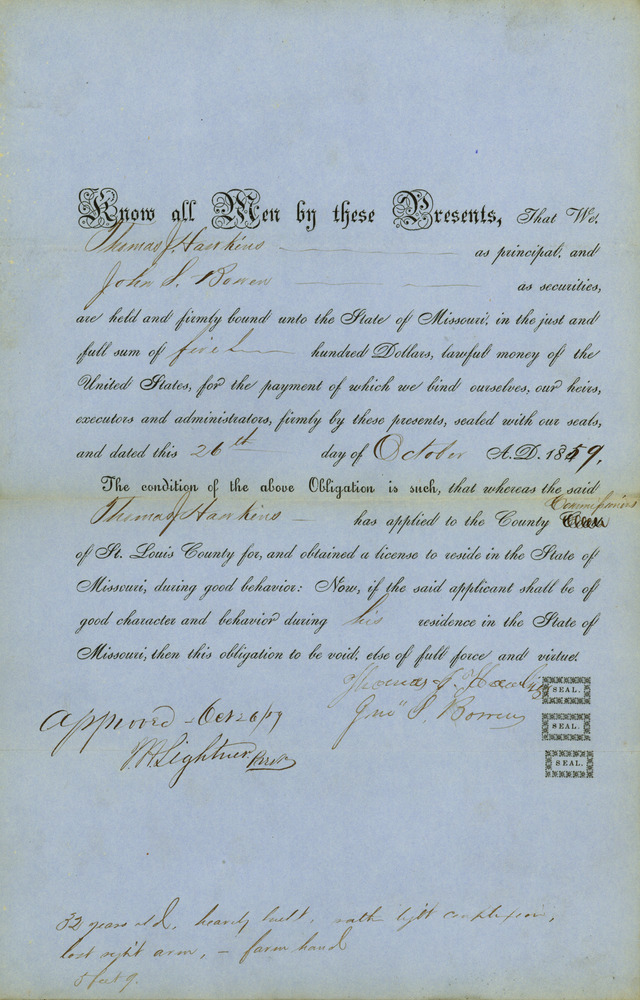 Know all Men by these Presents, That We,
Thomas J. Hawkins as principal, and
John S. Bowen as securities,
are held and firmly bound unto the State of Missouri, in the just and
full sum of five hundred Dollars, lawful money of the
United States, for the payment of which we bind ourselves, our heirs,
executors and administrators, firmly by these presents, sealed with our seals,
and dated this 26th day of October A.D. 1859,
The condition of the above Obligation is such, that whereas the said
Commissioners
Thomas J Hawkins has applied to the County Clerk
of St. Louis County for, and obtained a license to reside in the State of
Missouri, during good behavior: Now, if the said applicant shall be of
good character and behavior during his residence in the State of
Missouri, then this obligation to be void, else of full force and virtue.
Thomas J. SEAL.
Jno S. Bowen SEAL.
Approved - Oct 26/59
J H Lightner Prest SEAL.
32 years old, heavily built, rather light complexion,
lost right arm, - farm hand
5 feet 9.